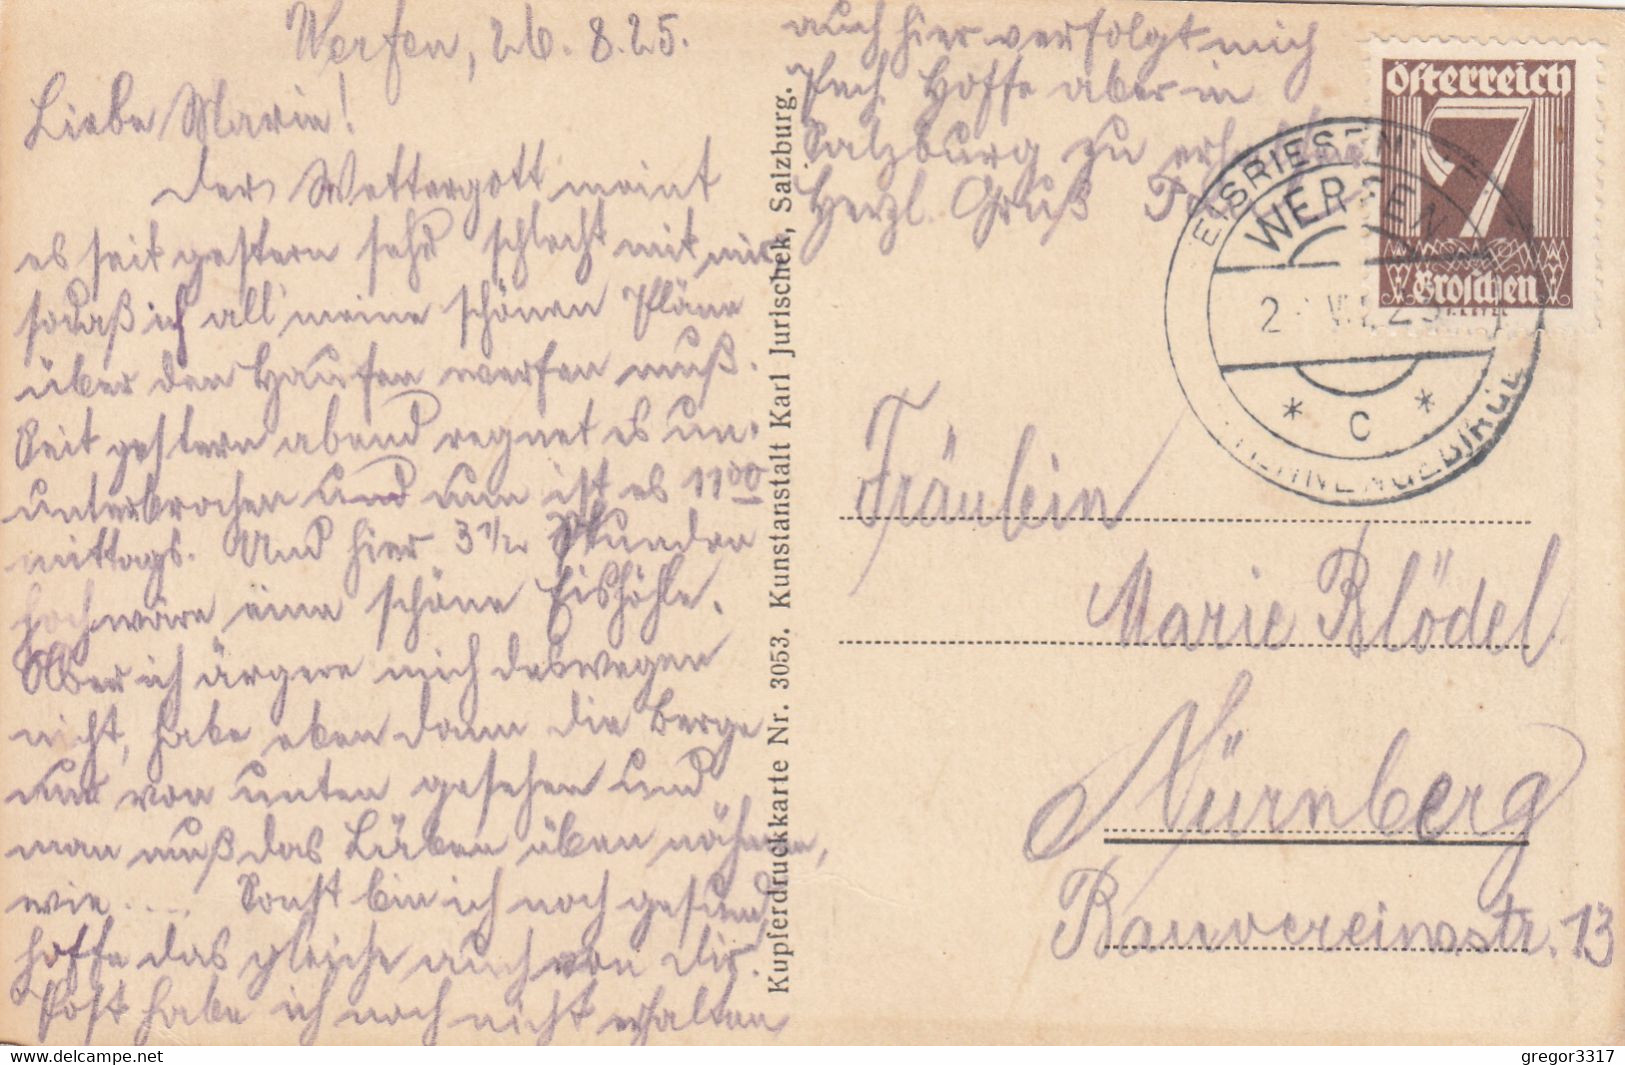 Werfen, 26. 8. 25.
Liebe Marie!
Der Wettergott meint
es seit gestern sehr schlecht mit mir
sodaß ich all' meine schönen Pläne
über den Haufen werfen muß.
Seit gestern abend regnet es un-
unterbrochen und nun ist es 11⁰⁰
mittags. Und hier 3 1/2 Stunden
hoch wäre eine schöne Eishöhle.
Aber ich ärgere mich deswegen
nicht, habe eben dann die Berge
nur von unten gesehen und
man muß das Leben eben nehmen,
wie .... Sonst bin ich noch gesund
hoffe das gleiche auch von Dir.
Post habe ich noch nicht erhalten
auch hier verfolgt mich
Pech. Hoffe aber in
Salzburg zu erhalten.
Herzl. Gruß
Kupferdruckkarte Nr. 3053. Kunstanstalt Karl Jurischek, Salzburg.
Österreich
7
Groschen
EISRIESENWELT
WERFEN
* C *
TENNENGEBIRGE
Fräulein
Marie Blödel
Nürnberg
Bauvereinsstr. 13
gregor3317